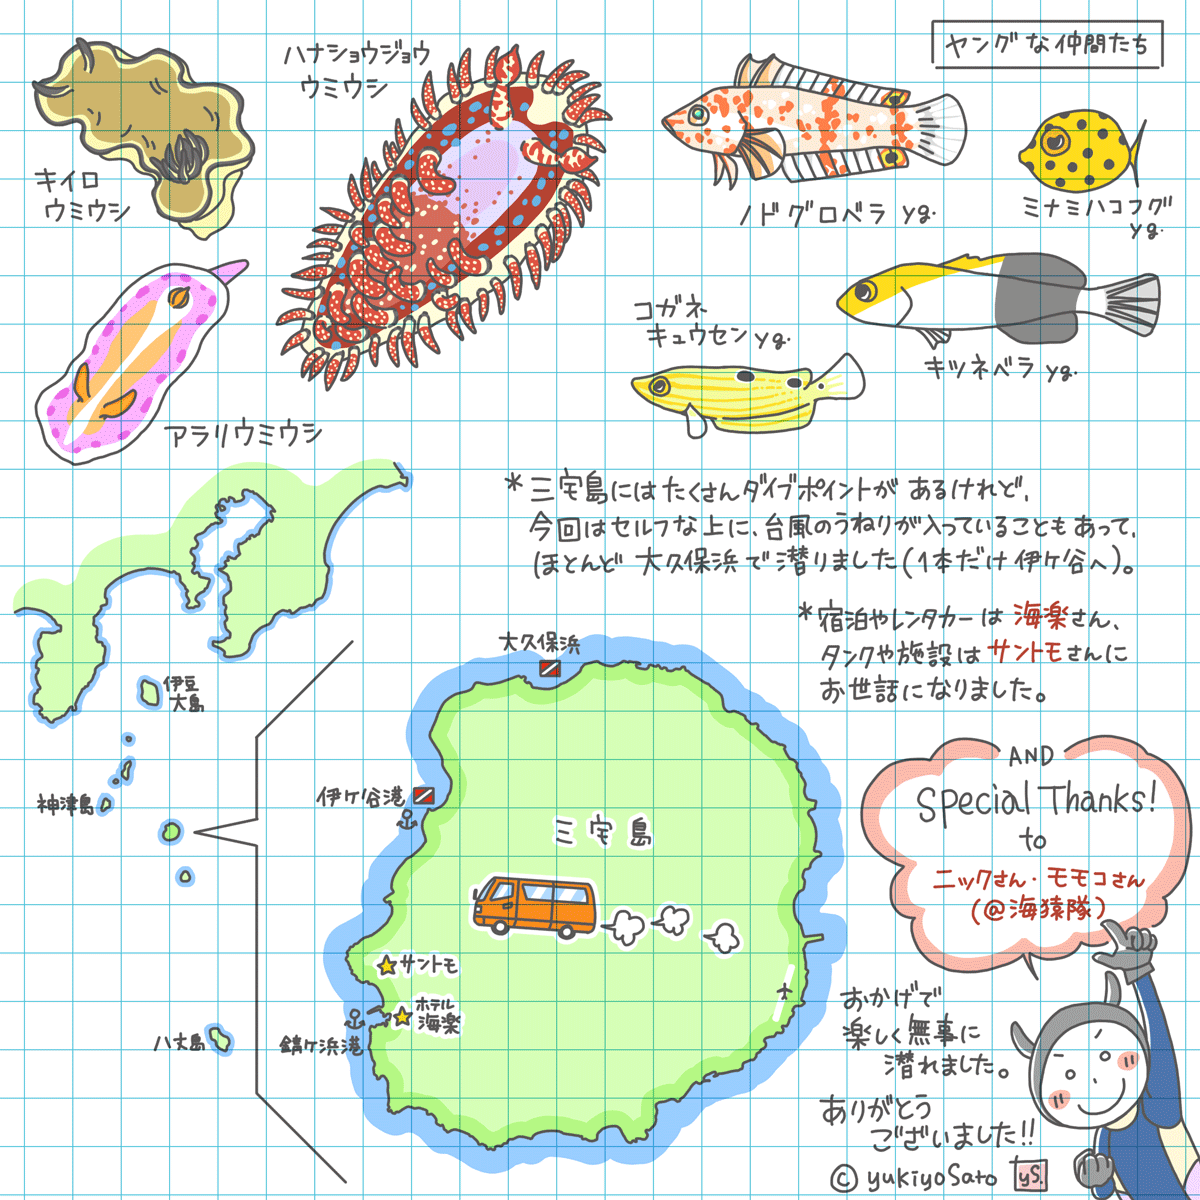 ヤングな仲間たち
ハナショウジョウ
ウミウシ
キイロ
ウミウシ
アラリウミウシ
ノドグロベラ yg.
ミナミハコフグ
yg.
コガネ
キュウセン yg.
キツネベラ yg.
*三宅島にはたくさんダイブポイントがあるけれど、
今回はセルフな上に、台風のうねりが入っていることもあって、
ほとんど大久保浜で潜りました(1本だけ伊ケ谷へ)。
*宿泊やレンタカーは海楽さん、
タンクや施設はサントモさんに
お世話になりました。
伊豆
大島
神津島
八丈島
大久保浜
伊ケ谷港
三宅島
サントモ
ホテル
海楽
錆ケ浜港
AND
Special Thanks!
to
ニックさん・モモコさん
(@海猿隊)
おかげで
楽しく無事に
潜れました。
ありがとう
ございました!!
© yukiyoSato yS.